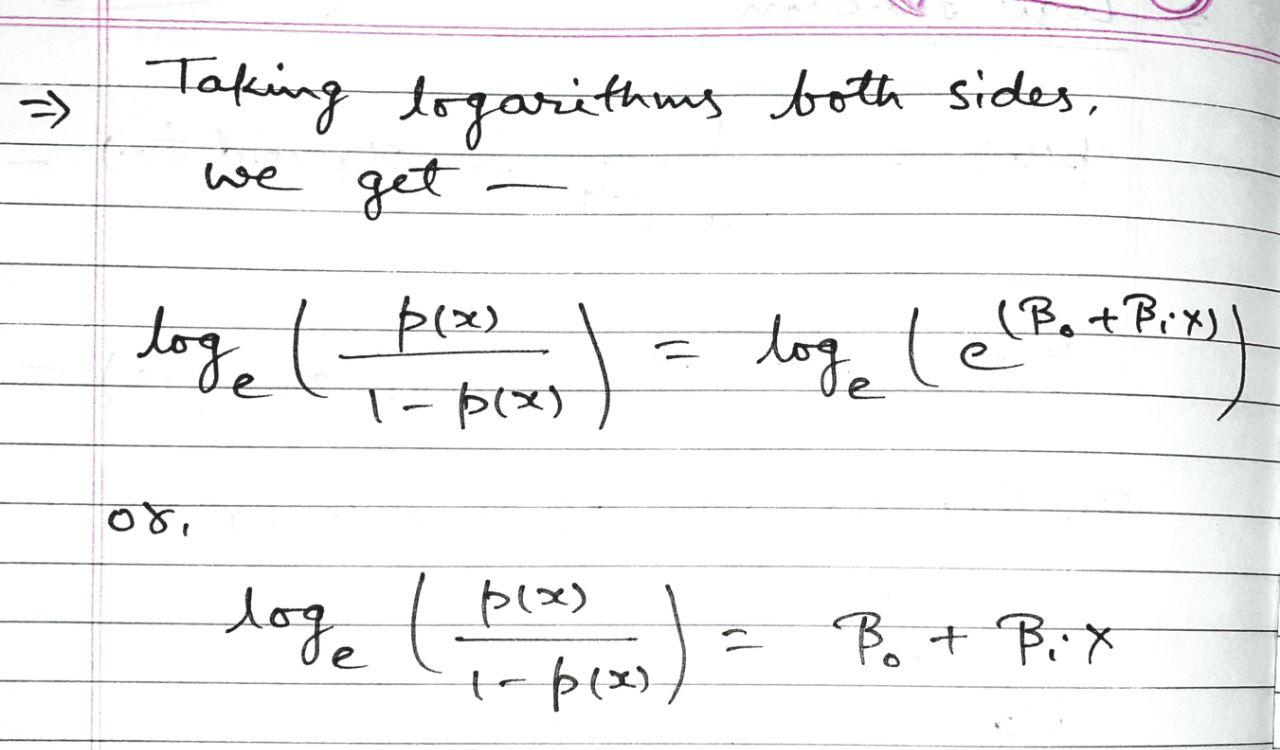 ⇒ Taking logarithms both sides,
we get —
logₑ ( p(x) / 1 - p(x) ) = logₑ ( e^(β₀ + β₁·x) )
or,
logₑ ( p(x) / 1 - p(x) ) = β₀ + β₁·x